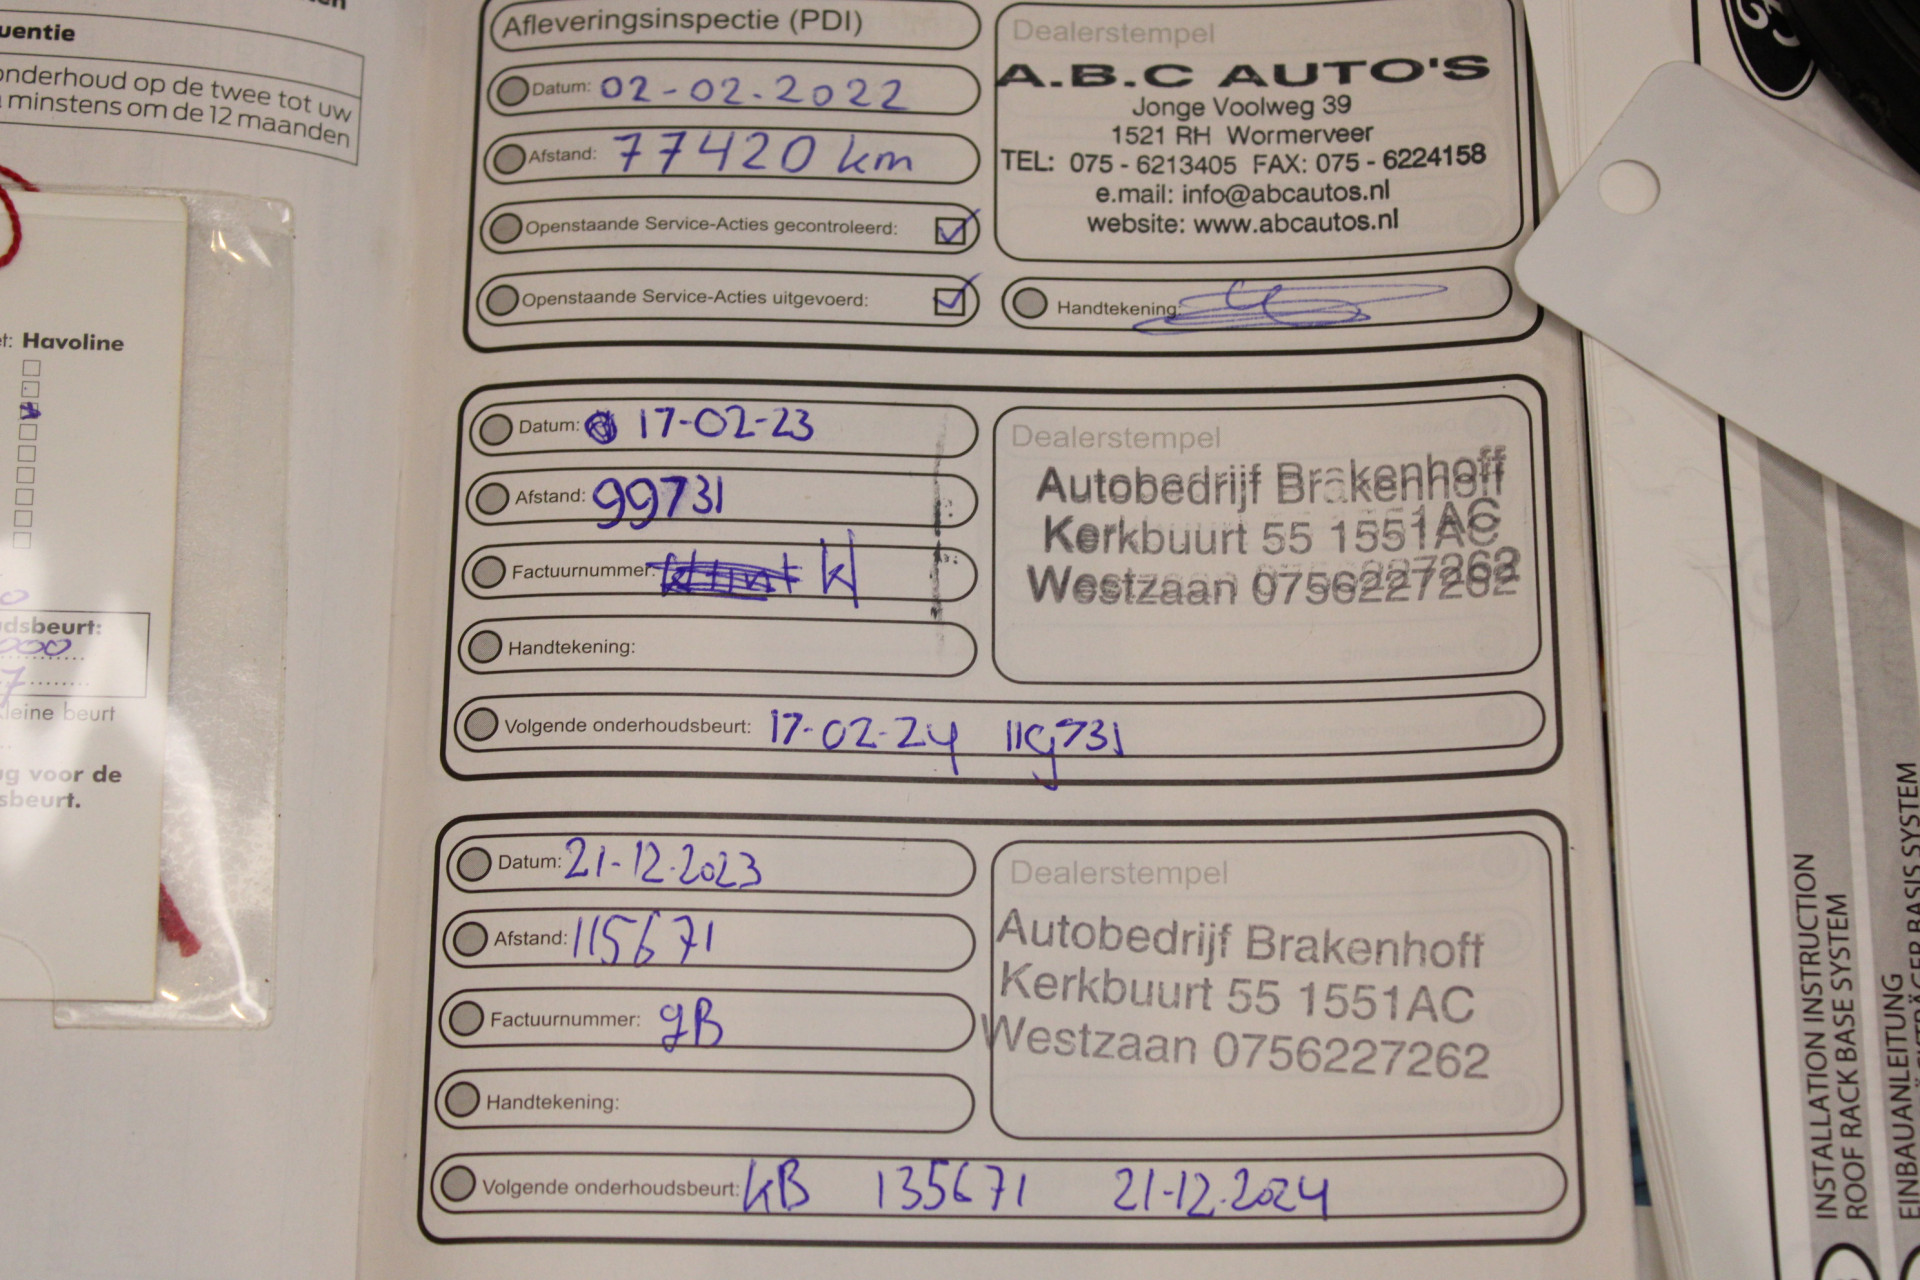 uentie
onderhoud op de twee tot uw
minstens om de 12 maanden
et: Havoline
dsbeurt:
000
7
kleine beurt
ug voor de
sbeurt.
Afleveringsinspectie (PDI)
Datum: 02-02-2022
Afstand: 77420 km
Openstaande Service-Acties gecontroleerd:
Openstaande Service-Acties uitgevoerd:
Dealerstempel
A.B.C AUTO'S
Jonge Voolweg 39
1521 RH Wormerveer
TEL: 075 - 6213405 FAX: 075 - 6224158
e.mail: info@abcautos.nl
website: www.abcautos.nl
Handtekening:
Datum: 17-02-23
Afstand: 99731
Factuurnummer:
Handtekening:
Volgende onderhoudsbeurt: 17-02-24 119731
Dealerstempel
Autobedrijf Brakenhoff
Kerkbuurt 55 1551AC
Westzaan 0756227262
Datum: 21-12-2023
Afstand: 115671
Factuurnummer: gB
Handtekening:
Volgende onderhoudsbeurt: kB 135671 21-12-2024
Dealerstempel
Autobedrijf Brakenhoff
Kerkbuurt 55 1551AC
Westzaan 0756227262
INSTALLATION INSTRUCTION
ROOF RACK BASE SYSTEM
EINBAUANLEITUNG